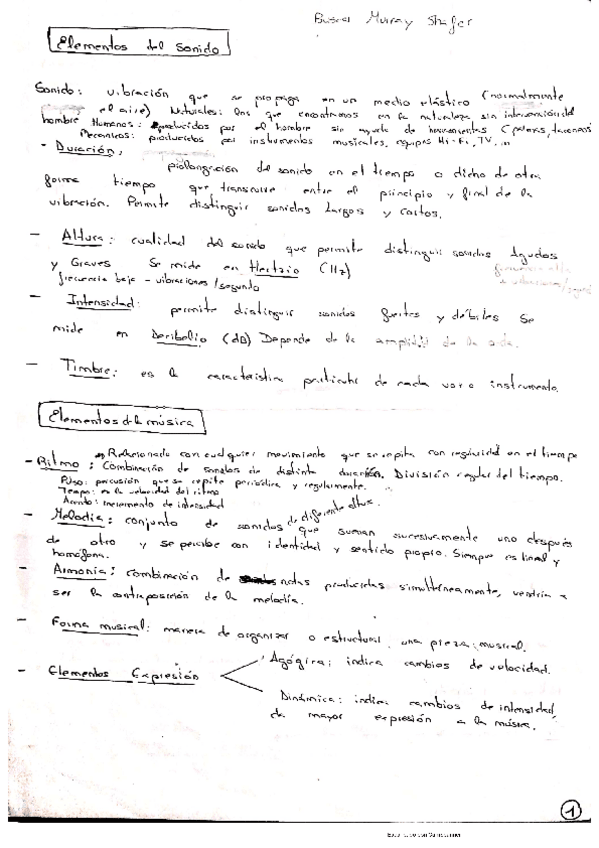 Buscar Murray Shafer
Elementos del Sonido
Sonido: vibración que se propaga en un medio elástico (normalmente
el aire) Naturales: los que encontramos en la naturaleza sin intervención del
hombre Humanos: producidos por el hombre sin ayuda de herramientas (palmas, tacones)
Mecánicos: producidos por instrumentos musicales, equipos Hi-Fi, TV...
- Duración:
prolongación del sonido en el tiempo o dicho de otra
forma tiempo que transcurre entre el principio y final de la
vibración. Permite distinguir sonidos largos y cortos.
- Altura: cualidad del sonido que permite distinguir sonidos Agudos
y Graves Se mide en Hertzio (Hz)
frecuencia baja - vibraciones/segundo
frecuencia alta
+ vibraciones/segundo
- Intensidad: permite distinguir sonidos fuertes y débiles Se
mide en Decibelio (dB) Depende de la amplitud de la onda.
- Timbre: es la característica particular de cada voz o instrumento.
Elementos de la música
Relacionado con cualquier movimiento que se repita con regularidad en el tiempo
- Ritmo: Combinación de sonidos de distinta duración. División regular del tiempo.
Pulso: percusión que se repite periódica y regularmente.
Tempo: es la velocidad del ritmo
Acento: incremento de intensidad
- Melodía: conjunto de sonidos de diferente altura que suenan sucesivamente uno después
de otro y se percibe con identidad y sentido propio. Siempre es lineal y
homófona.
- Armonía: Combinación de notas producidas simultáneamente, vendría a
ser la contraposición de la melodía.
- Forma musical: manera de organizar o estructural una pieza musical.
- Elementos Expresión
Agógica: indica cambios de velocidad.
Dinámica: indica cambios de intensidad,
da mayor expresión a la música.
1